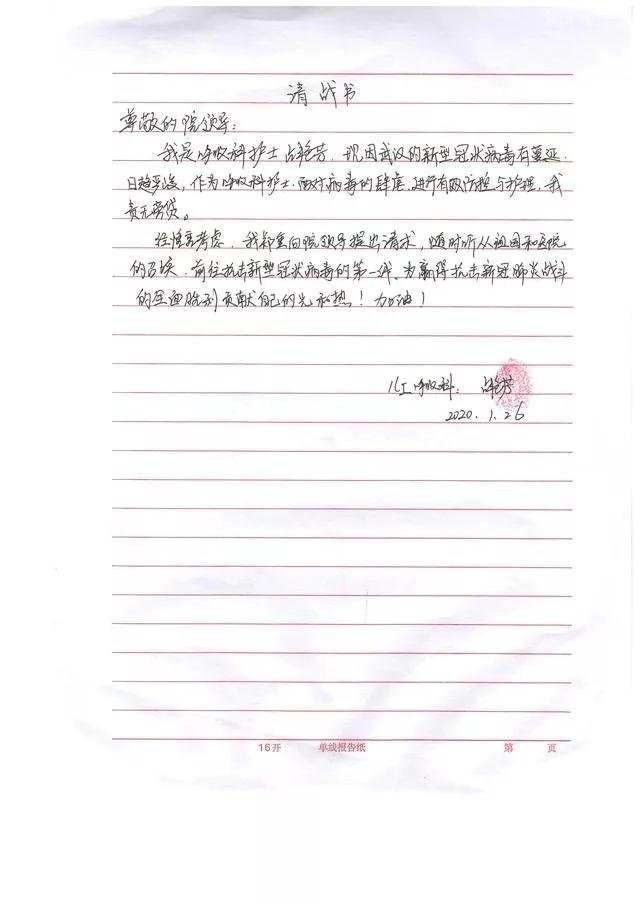 请战书
尊敬的院领导：
我是呼吸科护士占艳芳，现因武汉的新型冠状病毒有蔓延
日趋严峻，作为呼吸科护士，面对病毒的肆虐，进行有效防控与护理，我
责无旁贷。
经慎重考虑，我郑重向院领导提出请求，随时听从祖国和医院
的召唤，前往抗击新型冠状病毒的第一线，为赢得抗击新冠肺炎战斗
的全面胜利贡献自己的光和热！加油！
儿Ⅰ呼吸科：占艳芳
2020.1.26
16开 单线报告纸 第 页